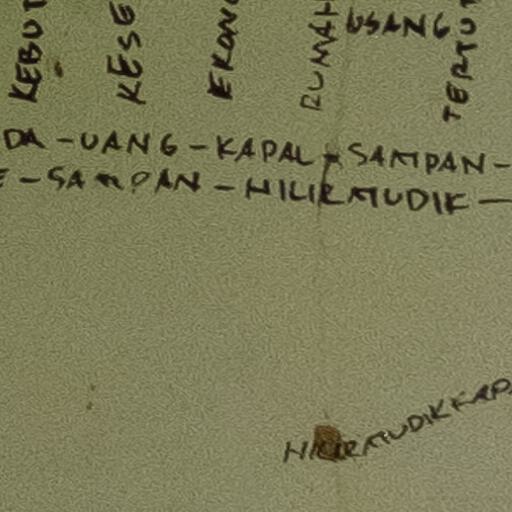 KEBUT
KESE
EKON
RUMAH
USANG
TERTUT
DA - UANG - KAPAL - SAMPAN -
E - SAMPAN - HILIRMUDIK -
HILIRMUDIKKAPA